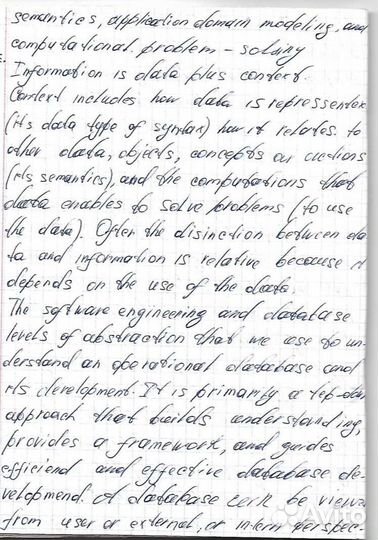 semantics, application domain modeling, and
computational problem - solving
Information is data plus context.
Context includes how data is repressented
(its data type of syntax) how it relates to
other data, objects, concepts or actions
(its semantics), and the computations that
data enables to solve problems (to use
the data). Often the disinction between da
ta and information is relative because it
depends on the use of the data.
The software engineering and database
levels of abstraction that we use to un-
derstand an operational database and
its development. It is primarily a top-down
approach that builds understanding,
provides a framework, and guides
efficiend and effective database de-
velopmend. A database be viewed
from user or external, or intern perspec-
Avito